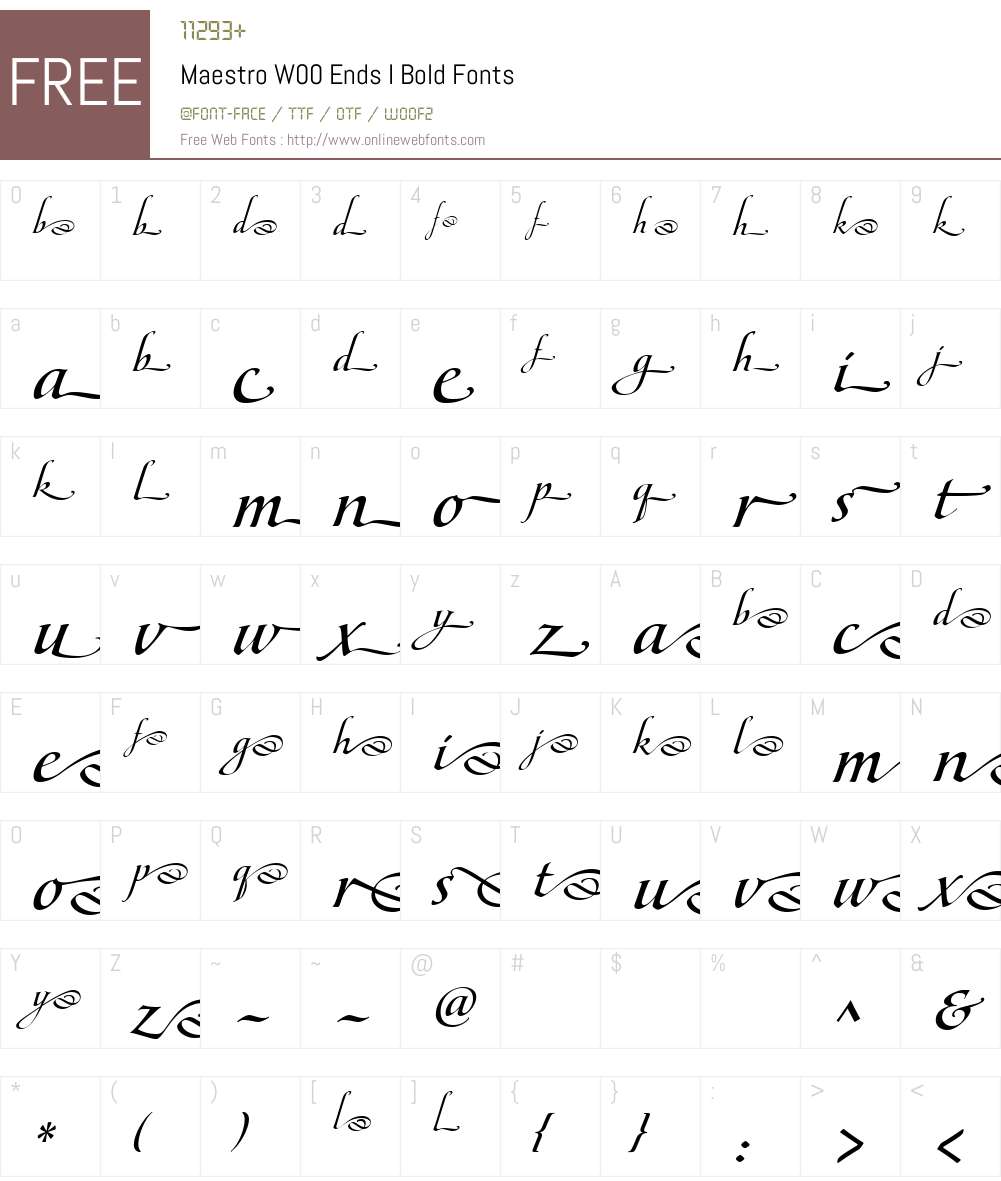 FREE
11293+
Maestro W00 Ends I Bold Fonts
@FONT-FACE / TTF / OTF / WOOF2
Free Web Fonts : http://www.onlinewebfonts.com
0 1 2 3 4 5 6 7 8 9
b b d d f f h h k k
a b c d e f g h i j
a b c d e f g h i j
k l m n o p q r s t
k l m n o p q r s t
u v w x y z A B C D
u v w x y z a b c d
E F G H I J K L M N
e f g h i j k l m n
O P Q R S T U V W X
o p q r s t u v w x
Y Z ~ ~ @ # $ % ^ &
y z ~ ~ @ ^ &
* ( ) [ ] { } : > <
* ( ) l l { } : > <